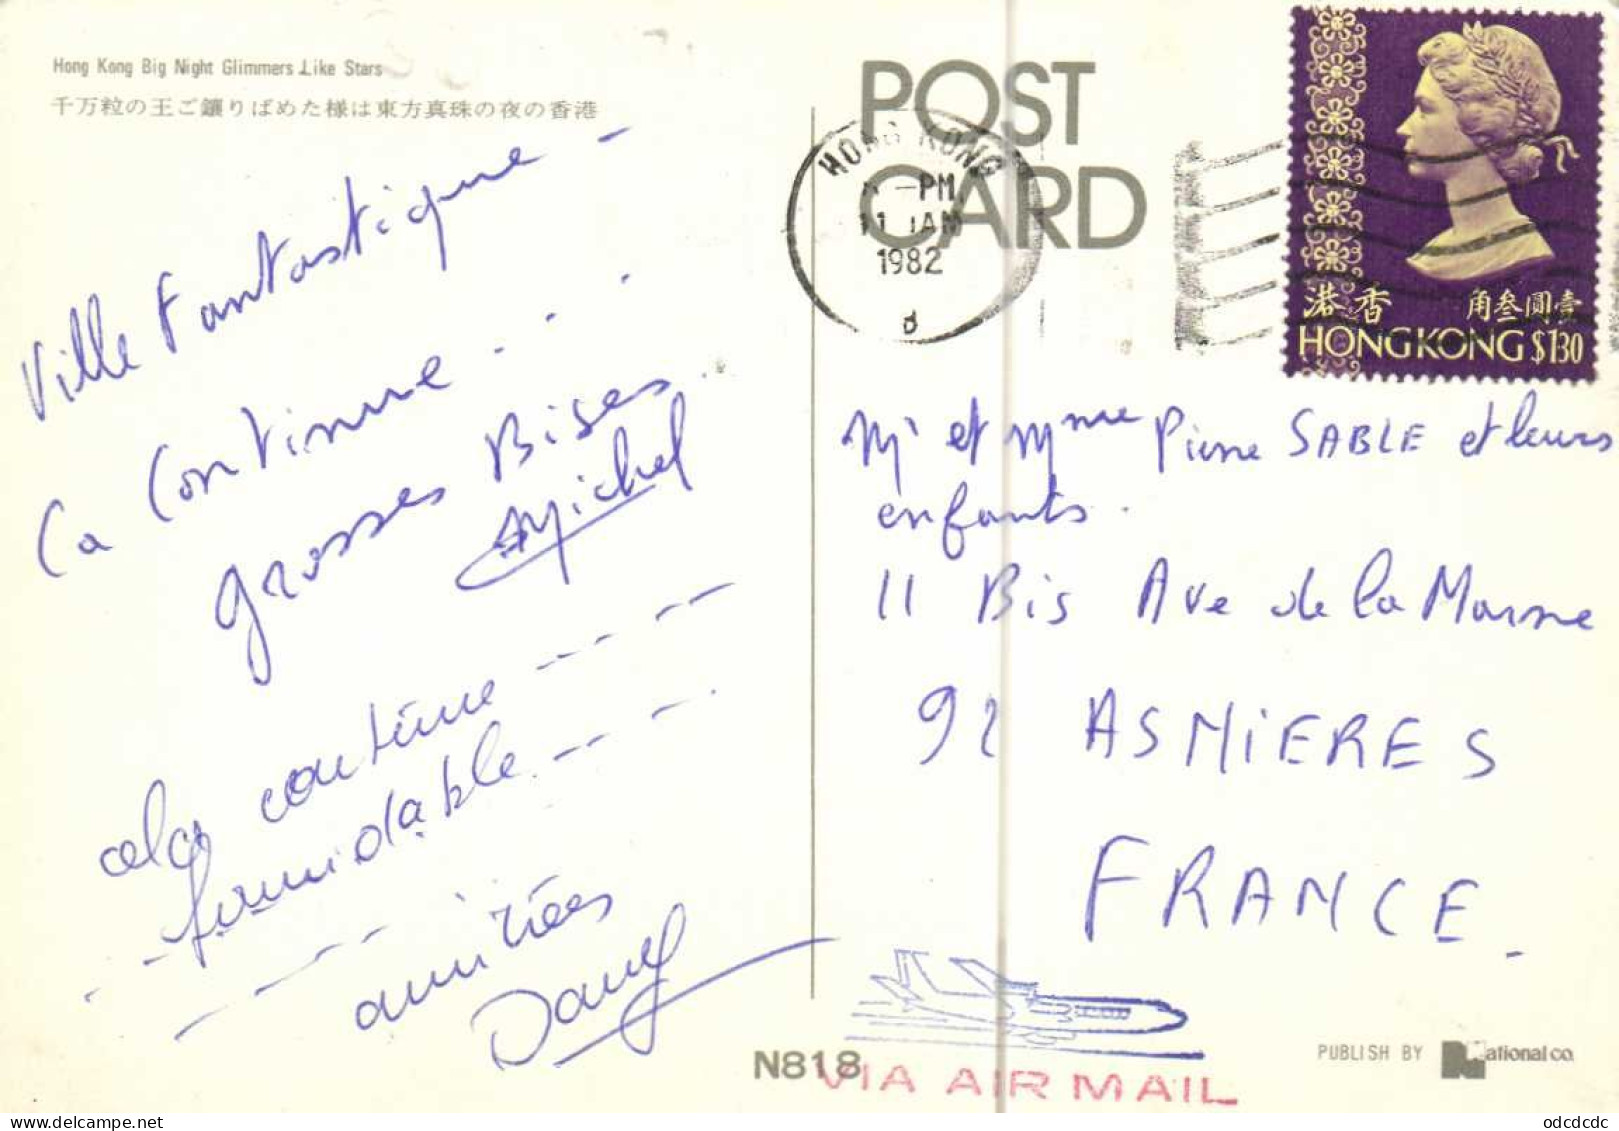 Hong Kong Big Night Glimmers Like Stars
千万粒の王ご鑲りばめた様は東方真珠の夜の香港
Ville Fantastique –
Ca Continue . .
grosses Bises.
Michel
cela continue -----
formidable. ----
amitiées
Dany
POST
CARD
HONG KONG
– PM
11 JAN
1982
港香 角叁圓壹
HONG KONG $1.30
Mr et Mme Pierre SABLE et leurs
enfants.
11 Bis Ave de la Marne
92 ASNIERES
FRANCE.
N818
VIA AIR MAIL
PUBLISH BY National co.
odcdcdc